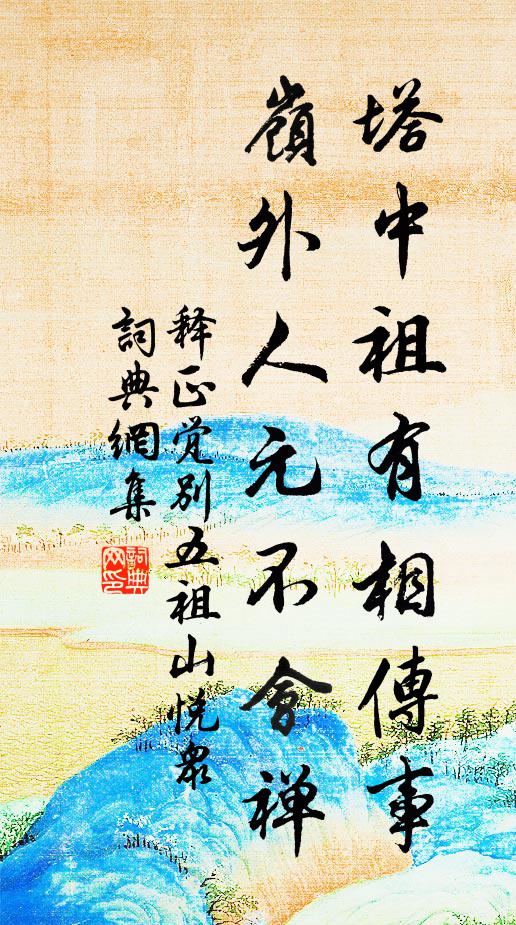 塔中祖有相傳事
嶺外人元不會禅
释正觉别五祖山悦眾
詞典網集
詞典
网印